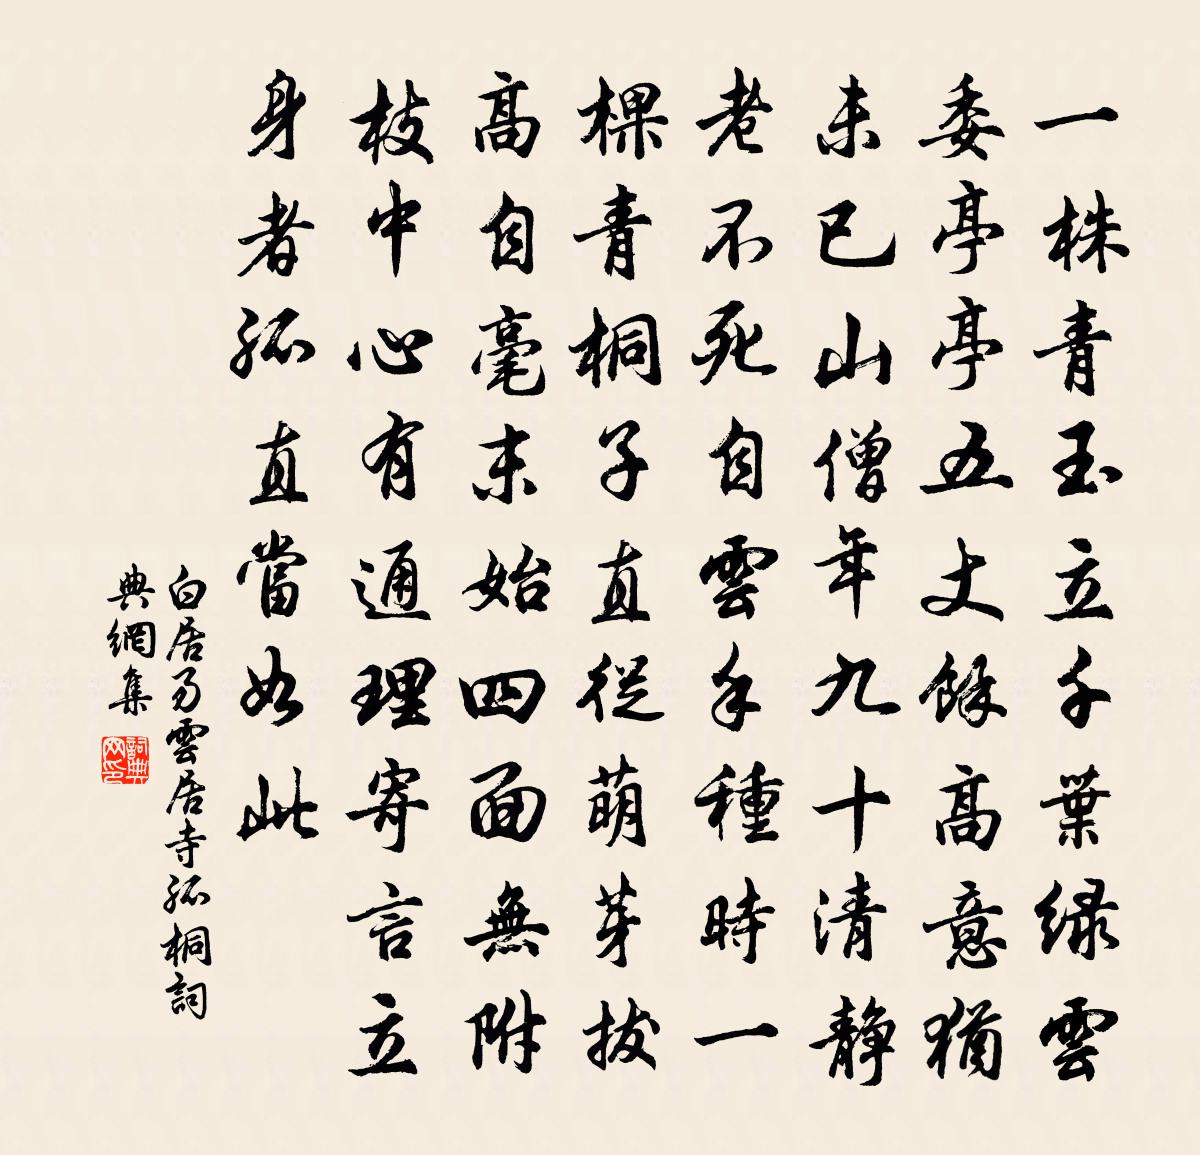 一株青玉立千葉緑雲
委亭亭五丈餘高意猶
未已山僧年九十清靜
老不死自雲手種時一
棵青桐子直從萌芽拔
高自毫末始四面無附
枝中心有通理寄言立
身者孤直當如此
白居易雲居寺孤桐詞
典網集
詞典网印